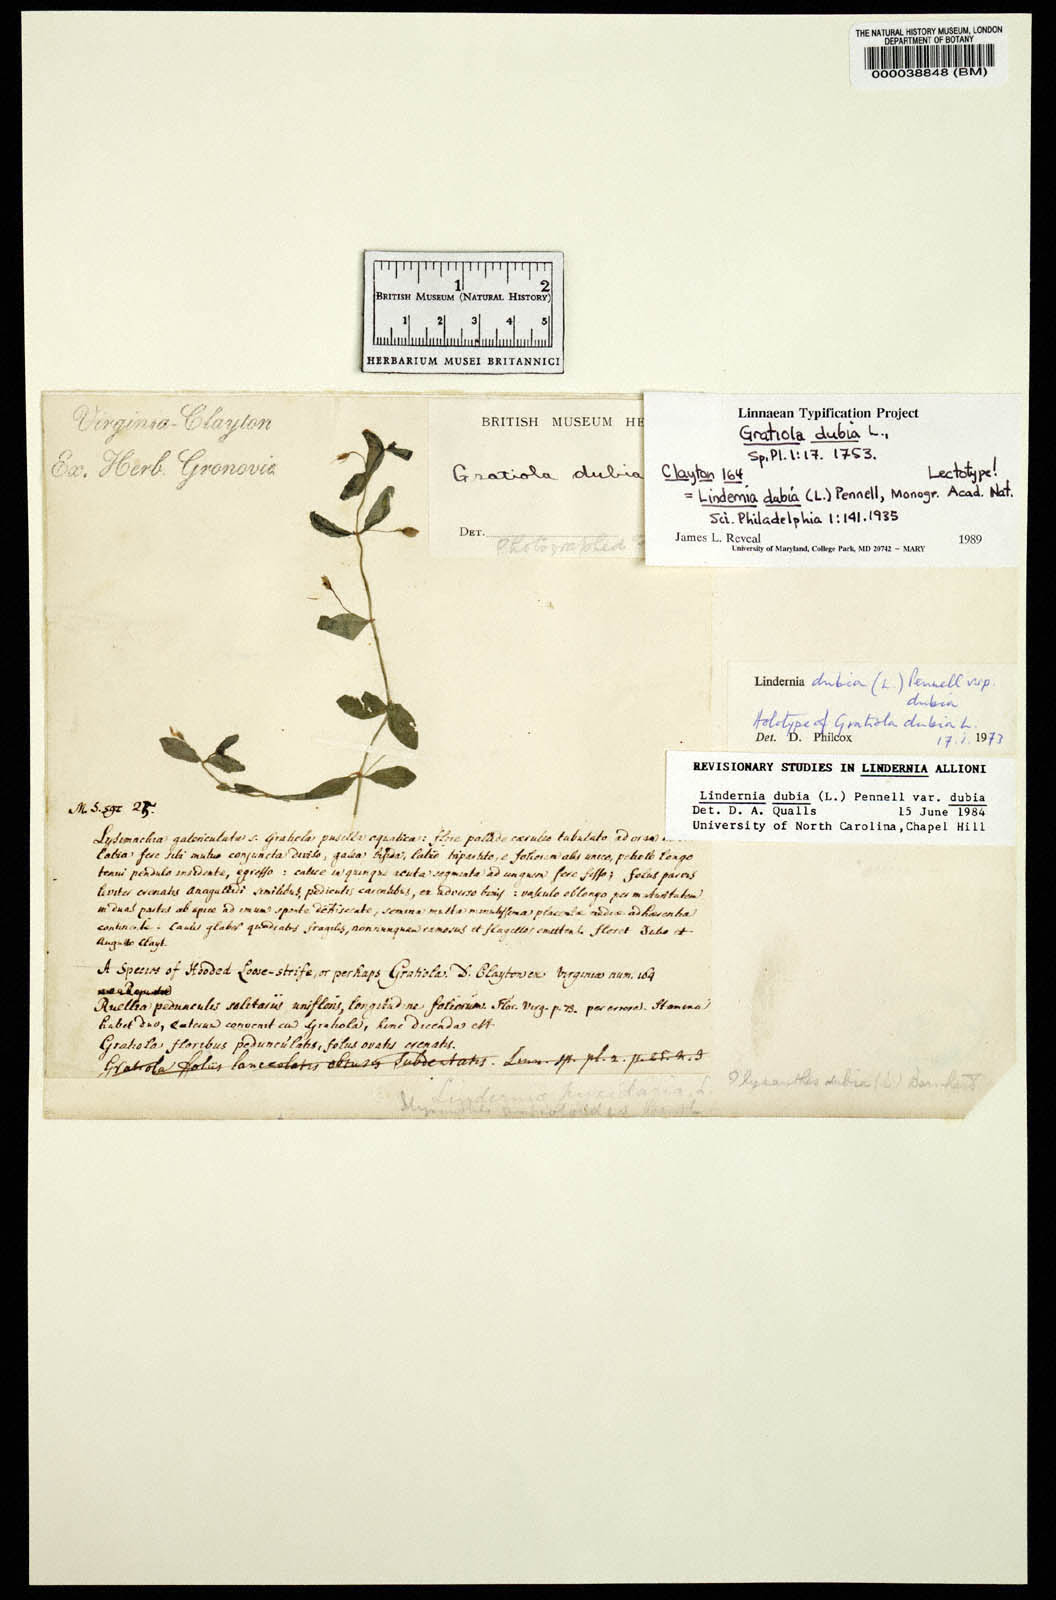 THE NATURAL HISTORY MUSEUM, LONDON
DEPARTMENT OF BOTANY
000038848 (BM)
1 2
BRITISH MUSEUM (NATURAL HISTORY)
1 2 3 4 5
HERBARIUM MUSEI BRITANNICI
Virginia-Clayton
Ex. Herb. Gronovii
BRITISH MUSEUM HE
Gratiola dubia
DET.
Photographed
Linnaean Typification Project
Gratiola dubia L.,
Sp. Pl. 1:17. 1753.
Clayton 164 Lectotype!
= Lindernia dubia (L.) Pennell, Monogr. Acad. Nat.
Sci. Philadelphia 1:141. 1935
James L. Reveal 1989
University of Maryland, College Park, MD 20742 – MARY
Lindernia dubia (L.) Pennell var.
dubia
Holotype of Gratiola dubia L.
Det. D. Philcox 17.i.1973
REVISIONARY STUDIES IN LINDERNIA ALLIONI
Lindernia dubia (L.) Pennell var. dubia
Det. D. A. Qualls 15 June 1984
University of North Carolina, Chapel Hill
Lysimachia galericulata s. Gratiola pusilla aquatica: flore pallide caeruleo tubulato ad oras
labia fere sibi mutuo conjuncta diviso, galea bifida, labio tripartito, e foliorum alis unico, petiolo longo
tenui pendulo insidente, egresso: calice in quinque acuta segmenta ad unguem fere fisso; foliis parvis
leviter crenatis Anagallidi similibus, pediculis carentibus, ex adverso binis: vasculo oblongo per maturitatem
in duas partes ab apice ad imum sponte dehiscente, semina multa minutissima placentae mediae adhaerentia
continente. Caulis glaber quadratus fragilis, nonnunquam ramosus et flagellos emittens. floret Julio et
Augusto Clayt.
A Species of Hooded Loose-strife, or perhaps Gratiola. D. Clayton ex Virginia num. 164
Ruellia pedunculis solitariis unifloris, longitudine foliorum. Flor. Virg. p. 73. per errorem. Stamina
habet duo, caetera convenit cu Gratiola, hinc dicenda est
Gratiola floribus pedunculatis, foliis ovatis crenatis.
Gratiola foliis lanceolatis obtusis subdentatis. Linn. sp. pl. 2. p.
Lindernia pyxidaria L.
Ilysanthes gratioloides Benth
Ilysanthes dubia (L.) Barnhart